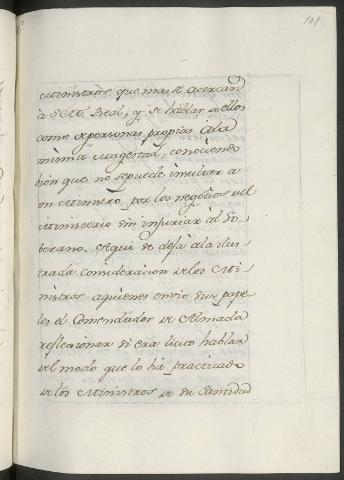 101
Ministros que mas se acercan
à S. M. Real, y se hablar de ellos
como personas propias à la
misma Magestad, conociendo
bien que no se puede insultar a
un Ministro por los negocios del
Ministerio sin injuriar al So-
berano. Aqui se dexa à la ilus-
trada consideracion de los Mi-
nistros aquienes envio sus pape-
les el Comendador de Almada
reflexionar si era licito hablar
del modo que lo hà practicado
de los Ministros de su Santidad